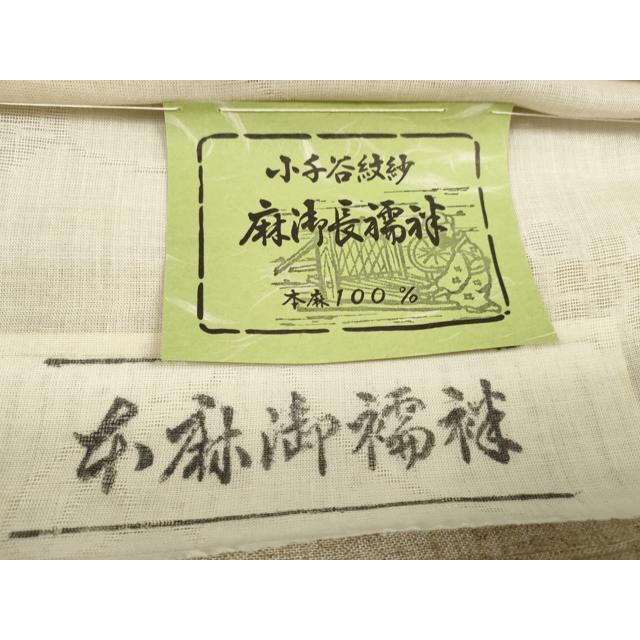 小千谷紋紗
麻御長襦袢
本麻100%
本麻御襦袢